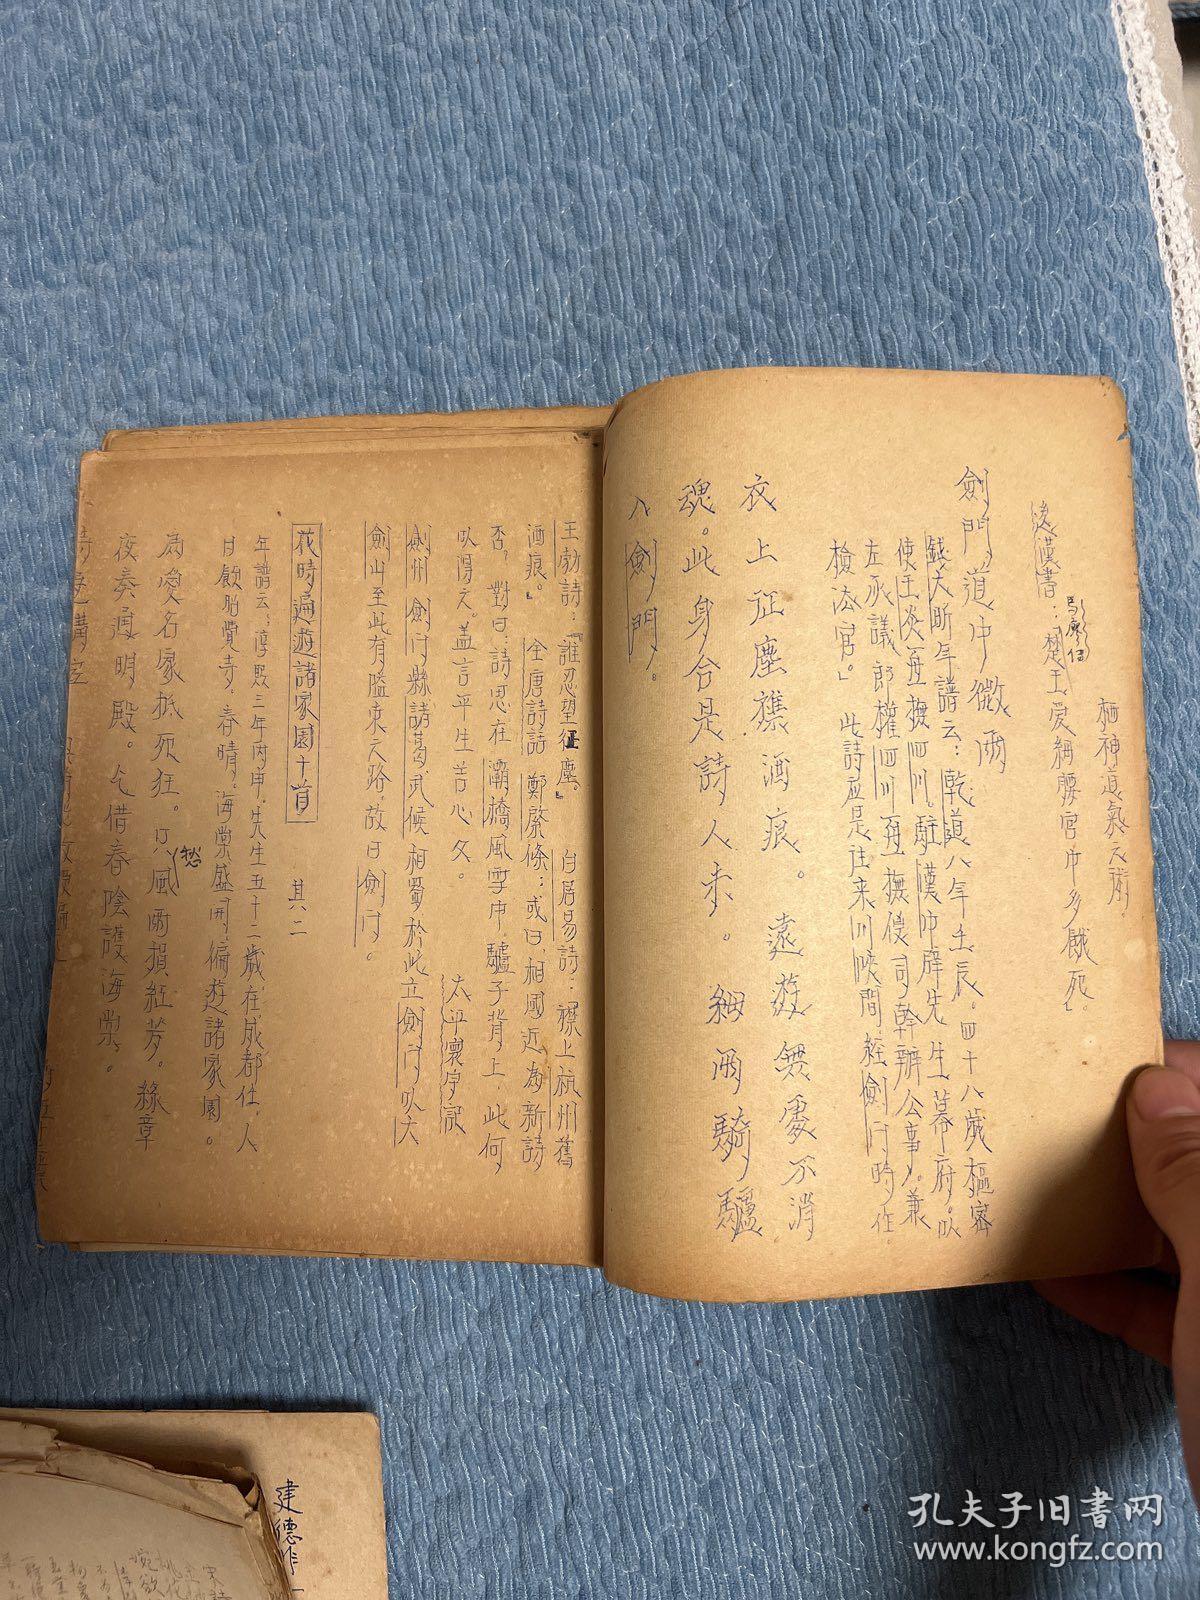 栖神導氣之術。
後漢書：馬廖傳「楚王愛細腰宮中多餓死。」
劍門道中微雨
錢大昕年譜云：乾道八年壬辰。四十八歲樞密
使王炎再撫四川。駐漢中辟先生幕府。以
左承議郎權四川再撫使司幹辦公事。兼
檢法官。」此詩應是往來川陝間。經劍門時作
衣上征塵襍酒痕。遠遊無處不消
魂。此身合是詩人未。細雨騎驢
入劍門。
王勃詩：『誰忍望征塵』 白居易詩：襟上杭州舊
酒痕。』 全唐詩話 鄭綮條：或曰，相國近為新詩
否。對曰：詩思在灞橋風雪中。驢子背上，此何
以得之。蓋言平生苦心久。 太平寰宇記
劍州劍門縣諸葛武候相蜀於此立劍門以大
劍山至此有隘束之路。故曰劍門。
花時遍遊諸家園十首 其二
年譜云：淳熙三年丙申。先生五十二歲，在成都任，人
日飲昭覺寺。春晴。海棠盛開，徧遊諸家園。
為愛名家抵死狂。只愁風雨損紅芳。綠章
夜奏通明殿。乞借春陰護海棠。
建德昨一
孔夫子旧書网
www.kongfz.com